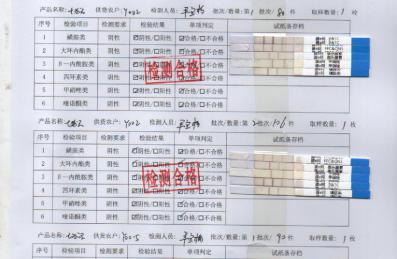 产品名称: 供货农户: Y002 检测人员: 批次/数量: 第1批次/80枚 取样数量: 1枚
序号 检验项目 检测要求 检验结果 单项判定 试纸条存档
1 磺胺类 阴性 ☑阴性/☐阳性 ☑合格/☐不合格
2 大环内酯类 阴性 ☑阴性/☐阳性 ☑合格/☐不合格
3 β—内酰胺类 阴性 ☑阴性/☐阳性 ☑合格/☐不合格
4 四环素类 阴性 ☑阴性/☐阳性 ☑合格/☐不合格
5 甲硝唑类 阴性 ☑阴性/☐阳性 ☑合格/☐不合格
6 喹诺酮类 阴性 ☑阴性/☐阳性 ☑合格/☐不合格
检测合格
产品名称: 供货农户: Y002 检测人员: 批次/数量: 第2批次/106枚 取样数量: 1枚
序号 检验项目 检测要求 检验结果 单项判定 试纸条存档
1 磺胺类 阴性 ☑阴性/☐阳性 ☑合格/☐不合格
2 大环内酯类 阴性 ☑阴性/☐阳性 ☑合格/☐不合格
3 β—内酰胺类 阴性 ☑阴性/☐阳性 ☑合格/☐不合格
4 四环素类 阴性 ☑阴性/☐阳性 ☑合格/☐不合格
5 甲硝唑类 阴性 ☑阴性/☐阳性 ☑合格/☐不合格
6 喹诺酮类 阴性 ☑阴性/☐阳性 ☑合格/☐不合格
检测合格
产品名称: 供货农户: 检测人员: 批次/数量: 第1批次/90枚 取样数量: 1枚
序号 检验项目 检测要求 检验结果 单项判定 试纸条存档